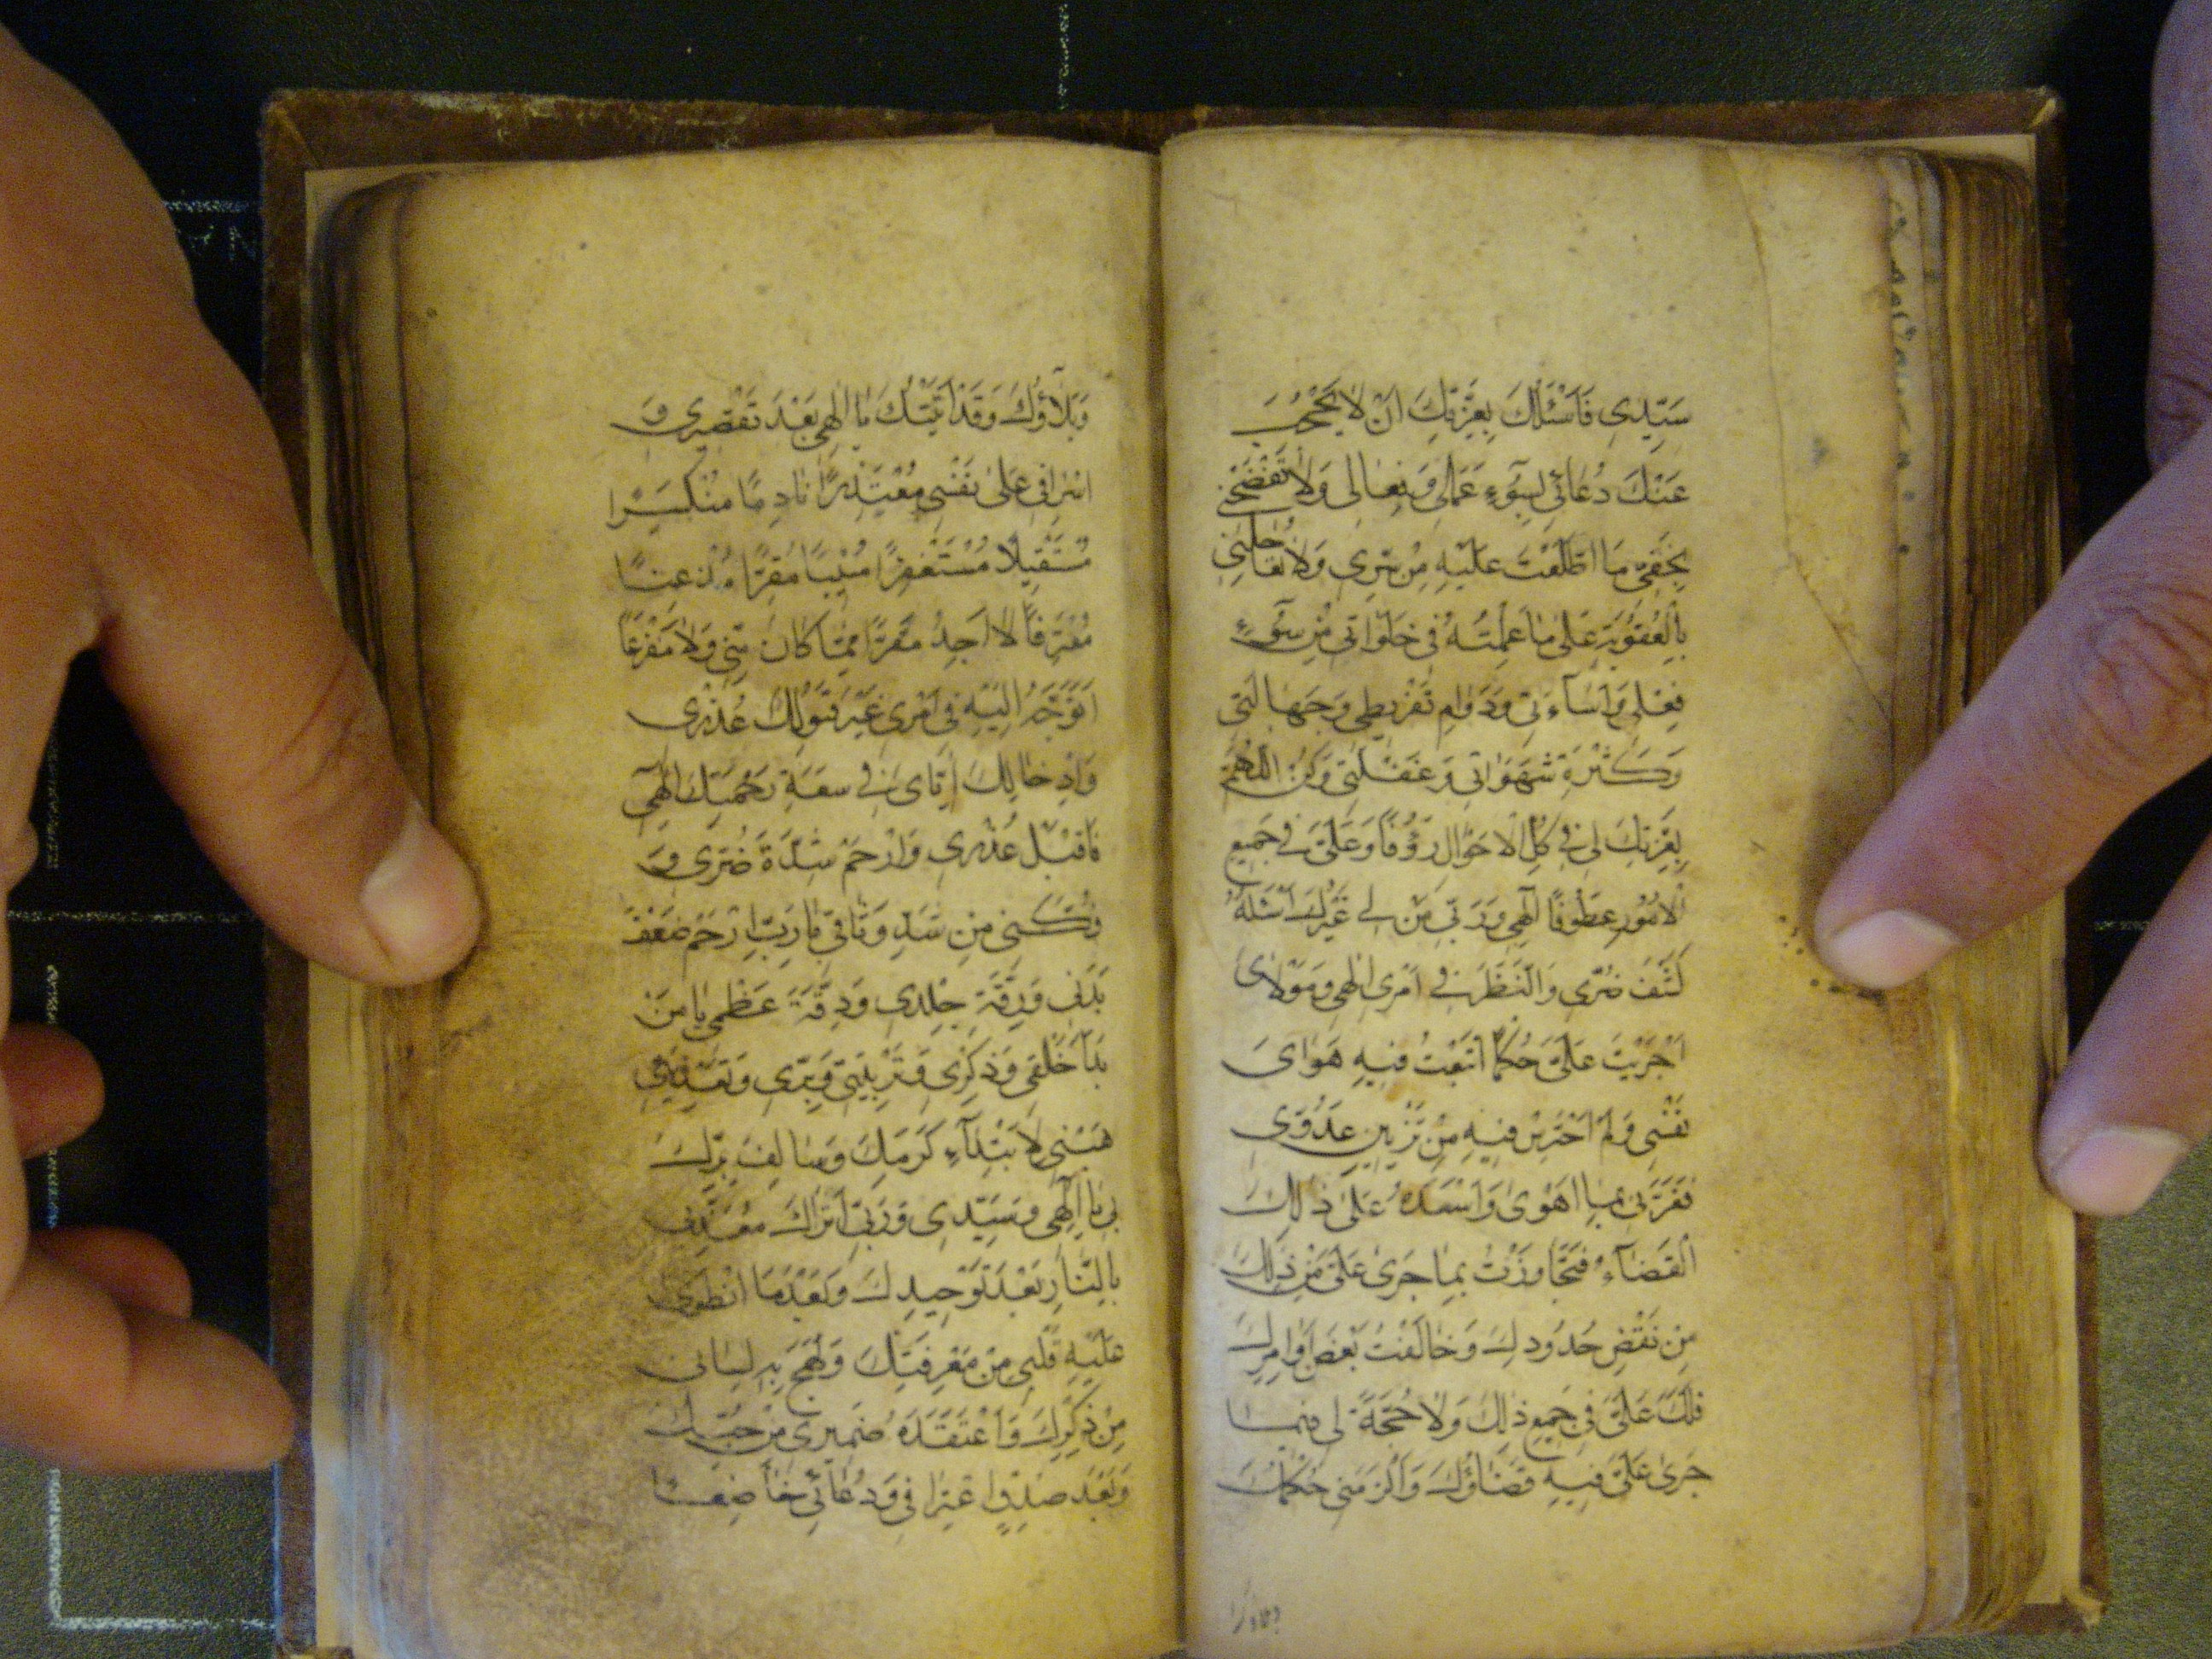 سَيِّدِي فَاَسْئَلُكَ بِعِزَّتِكَ اَنْ لَا يَحْجُبَ
عَنْكَ دُعَائِي لِسُوٓءِ عَمَلِي وَفِعَالِي وَلَا تَفْضَحْنِي
بِخَفِيِّ مَا اطَّلَعْتَ عَلَيْهِ مِنْ سِرِّي وَلَا تُعَاجِلْنِي
بِالْعُقُوبَةِ عَلَى مَا عَمِلْتُهُ فِي خَلَوَاتِي مِنْ سُوٓءِ
فِعْلِي وَاِسَآءَتِي وَدَوَامِ تَفْرِيطِي وَجَهَالَتِي
وَكَثْرَةِ شَهَوَاتِي وَغَفْلَتِي وَكُنِ اللّٰهُمَّ
بِعِزَّتِكَ لِي فِي كُلِّ الْاَحْوَالِ رَؤُفًا وَعَلَيَّ فِي جَمِيعِ
الْاُمُورِ عَطُوفًا اِلٰهِي وَرَبِّي مَنْ لِي غَيْرُكَ اَسْئَلُهُ
كَشْفَ ضُرِّي وَالنَّظَرَ فِي اَمْرِي اِلٰهِي وَمَوْلَايَ
اَجْرَيْتَ عَلَيَّ حُكْمًا اتَّبَعْتُ فِيهِ هَوَايَ
نَفْسِي وَلَمْ اَحْتَرِسْ فِيهِ مِنْ تَزْيِينِ عَدُوِّي
فَغَرَّنِي بِمَا اَهْوَى وَاَسْعَدَهُ عَلَى ذٰلِكَ
الْقَضَآءُ فَتَجَاوَزْتُ بِمَا جَرَى عَلَيَّ مِنْ ذٰلِكَ
مِنْ نَقْضِ حُدُودِكَ وَخَالَفْتُ بَعْضَ اَوَامِرِكَ
فَلَكَ عَلَيَّ فِي جَمِيعِ ذٰلِكَ وَلَا حُجَّةَ لِي فِيمَا
جَرَى عَلَيَّ فِيهِ قَضَاؤُكَ وَاَلْزَمَنِي حُكْمُكَ
وَبَلَآؤُكَ وَقَدْ اَتَيْتُكَ يَا اِلٰهِي بَعْدَ تَقْصِيرِي وَ
اِسْرَافِي عَلَى نَفْسِي مُعْتَذِرًا نَادِمًا مُنْكَسِرًا
مُسْتَقِيلًا مُسْتَغْفِرًا مُنِيبًا مُقِرًّا مُذْعِنًا
مُعْتَرِفًا لَا اَجِدُ مَفَرًّا مِمَّا كَانَ مِنِّي وَلَا مَفْزَعًا
اَتَوَجَّهُ اِلَيْهِ فِي اَمْرِي غَيْرَ قَبُولِكَ عُذْرِي
وَاِدْخَالِكَ اِيَّايَ فِي سَعَةِ رَحْمَتِكَ اِلٰهِي
فَاقْبَلْ عُذْرِي وَارْحَمْ شِدَّةَ ضُرِّي وَ
فُكَّنِي مِنْ شَدِّ وَثَاقِي يَا رَبِّ ارْحَمْ ضَعْفَ
بَدَنِي وَرِقَّةَ جِلْدِي وَدِقَّةَ عَظْمِي يَا مَنْ
بَدَاَ خَلْقِي وَذِكْرِي وَتَرْبِيَتِي وَبِرِّي وَتَغْذِيَتِي
هَبْنِي لِابْتِدَآءِ كَرَمِكَ وَسَالِفِ بِرِّكَ
بِي يَا اِلٰهِي وَسَيِّدِي وَرَبِّي اَتُرَاكَ مُعَذِّبِي
بِالنَّارِ بَعْدَ تَوْحِيدِكَ وَبَعْدَ مَا انْطَوَى
عَلَيْهِ قَلْبِي مِنْ مَعْرِفَتِكَ وَلَهِجَ بِهِ لِسَانِي
مِنْ ذِكْرِكَ وَاعْتَقَدَهُ ضَمِيرِي مِنْ حُبِّكَ
وَبَعْدَ صِدْقِ اعْتِرَافِي وَدُعَائِي خَاضِعًا